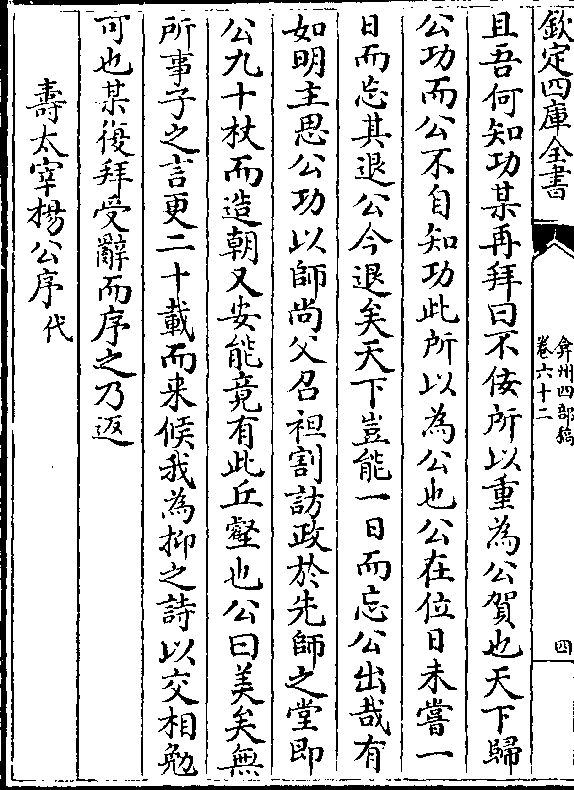 欽定四庫全書
弇州四部稿
卷六十二
四
且吾何知功某再拜曰不佞所以重為公賀也天下歸
公功而公不自知功此所以為公也公在位日未嘗一
日而忘其退公今退矣天下豈能一日而忘公出哉有
如明主思公功以師尚父召袒割訪政於先師之堂即
公九十杖而造朝又安能竟有此丘壑也公曰美矣無
所事子之言更二十載而来候我為抑之詩以交相勉
可也某復拜受辭而序之乃返
壽太宰楊公序代